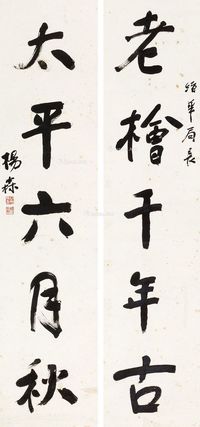 局長
老檜千年古
太平六月秋
楊森